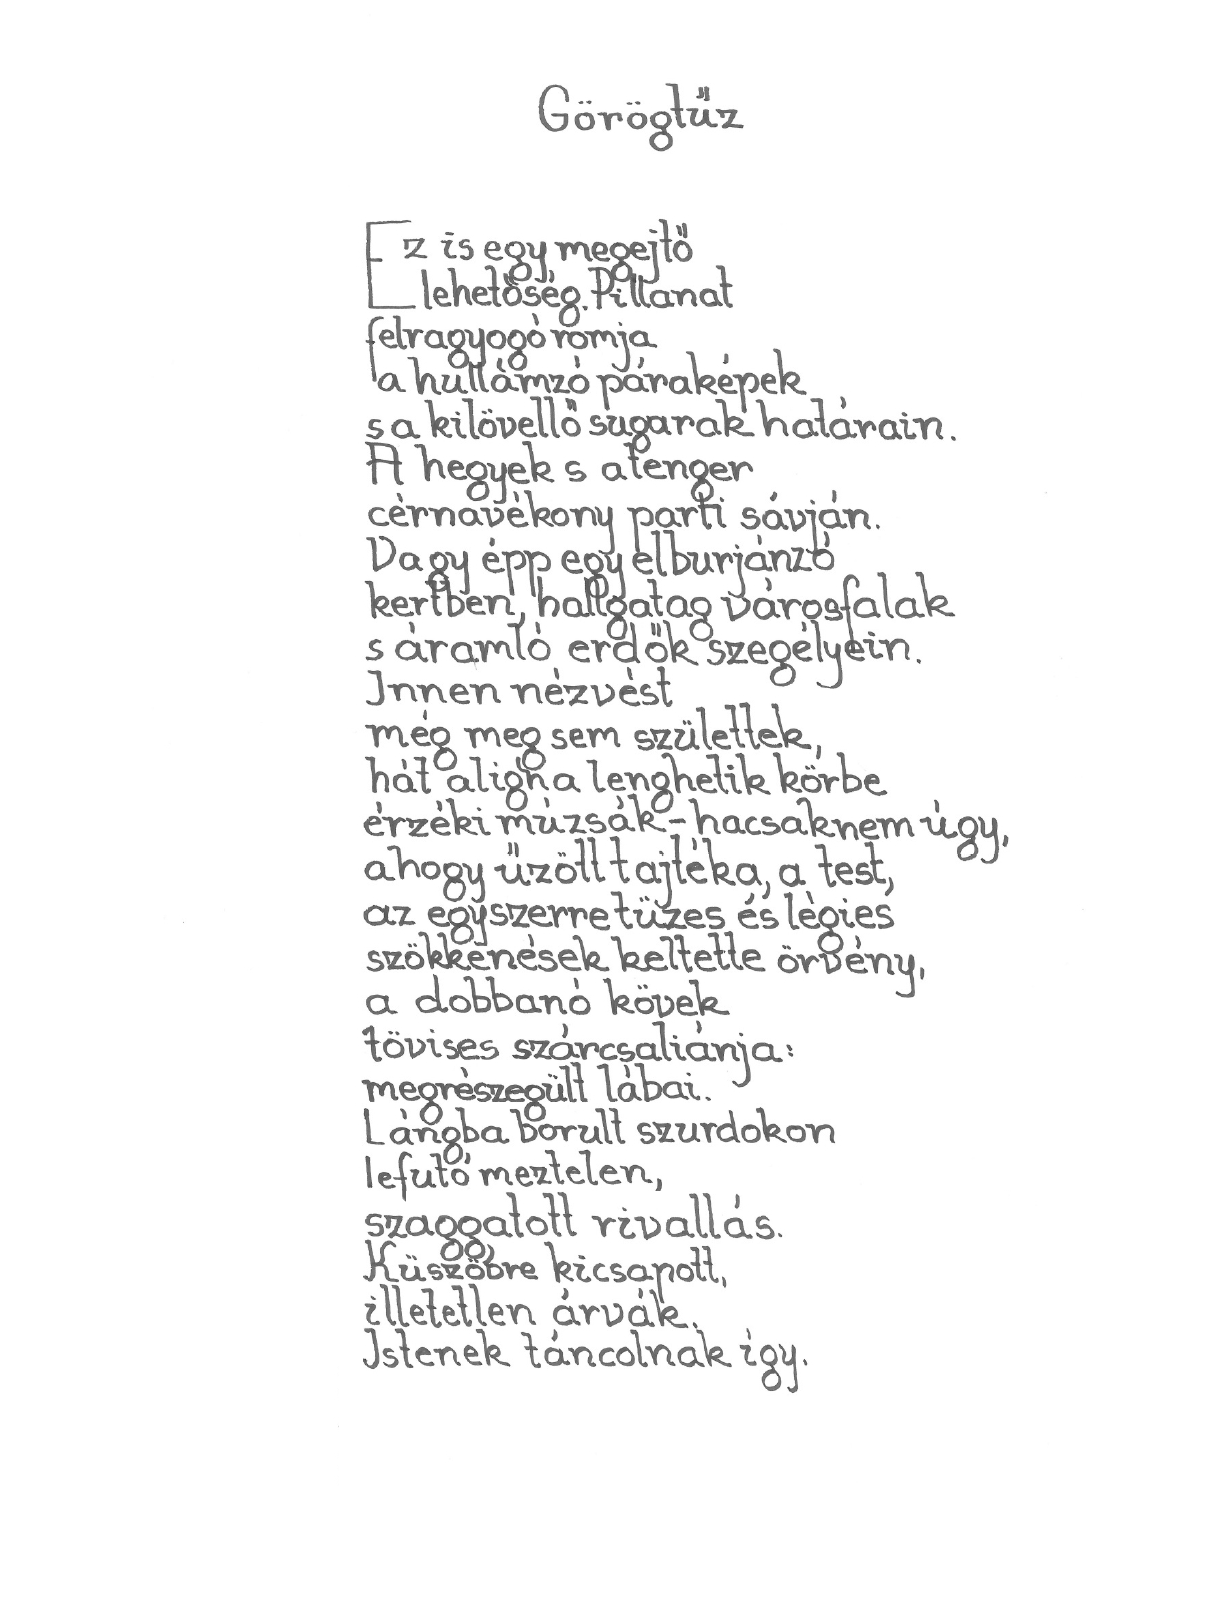 Görögtűz
Ez is egy megejtő
lehetőség. Pillanat
felragyogó romja
a hullámzó páraképek
s a kilövellő sugarak határain.
A hegyek s a tenger
cérnavékony parti sávján.
Vagy épp egy elburjánzó
kertben, hallgatag városfalak
s áramló erdők szegélyein.
Innen nézvést
még meg sem születtek,
hát aligha lenghetik körbe
érzéki múzsák – hacsaknem úgy,
ahogy űzött tajtéka, a test,
az egyszerre tüzes és légies
szökkenések keltette örvény,
a dobbanó kövek
tövises szárcsaliánja:
megrészegült lábai.
Lángba borult szurdokon
lefutó meztelen,
szaggatott rivallás.
Küszöbre kicsapott,
illetetlen árvák.
Istenek táncolnak így.